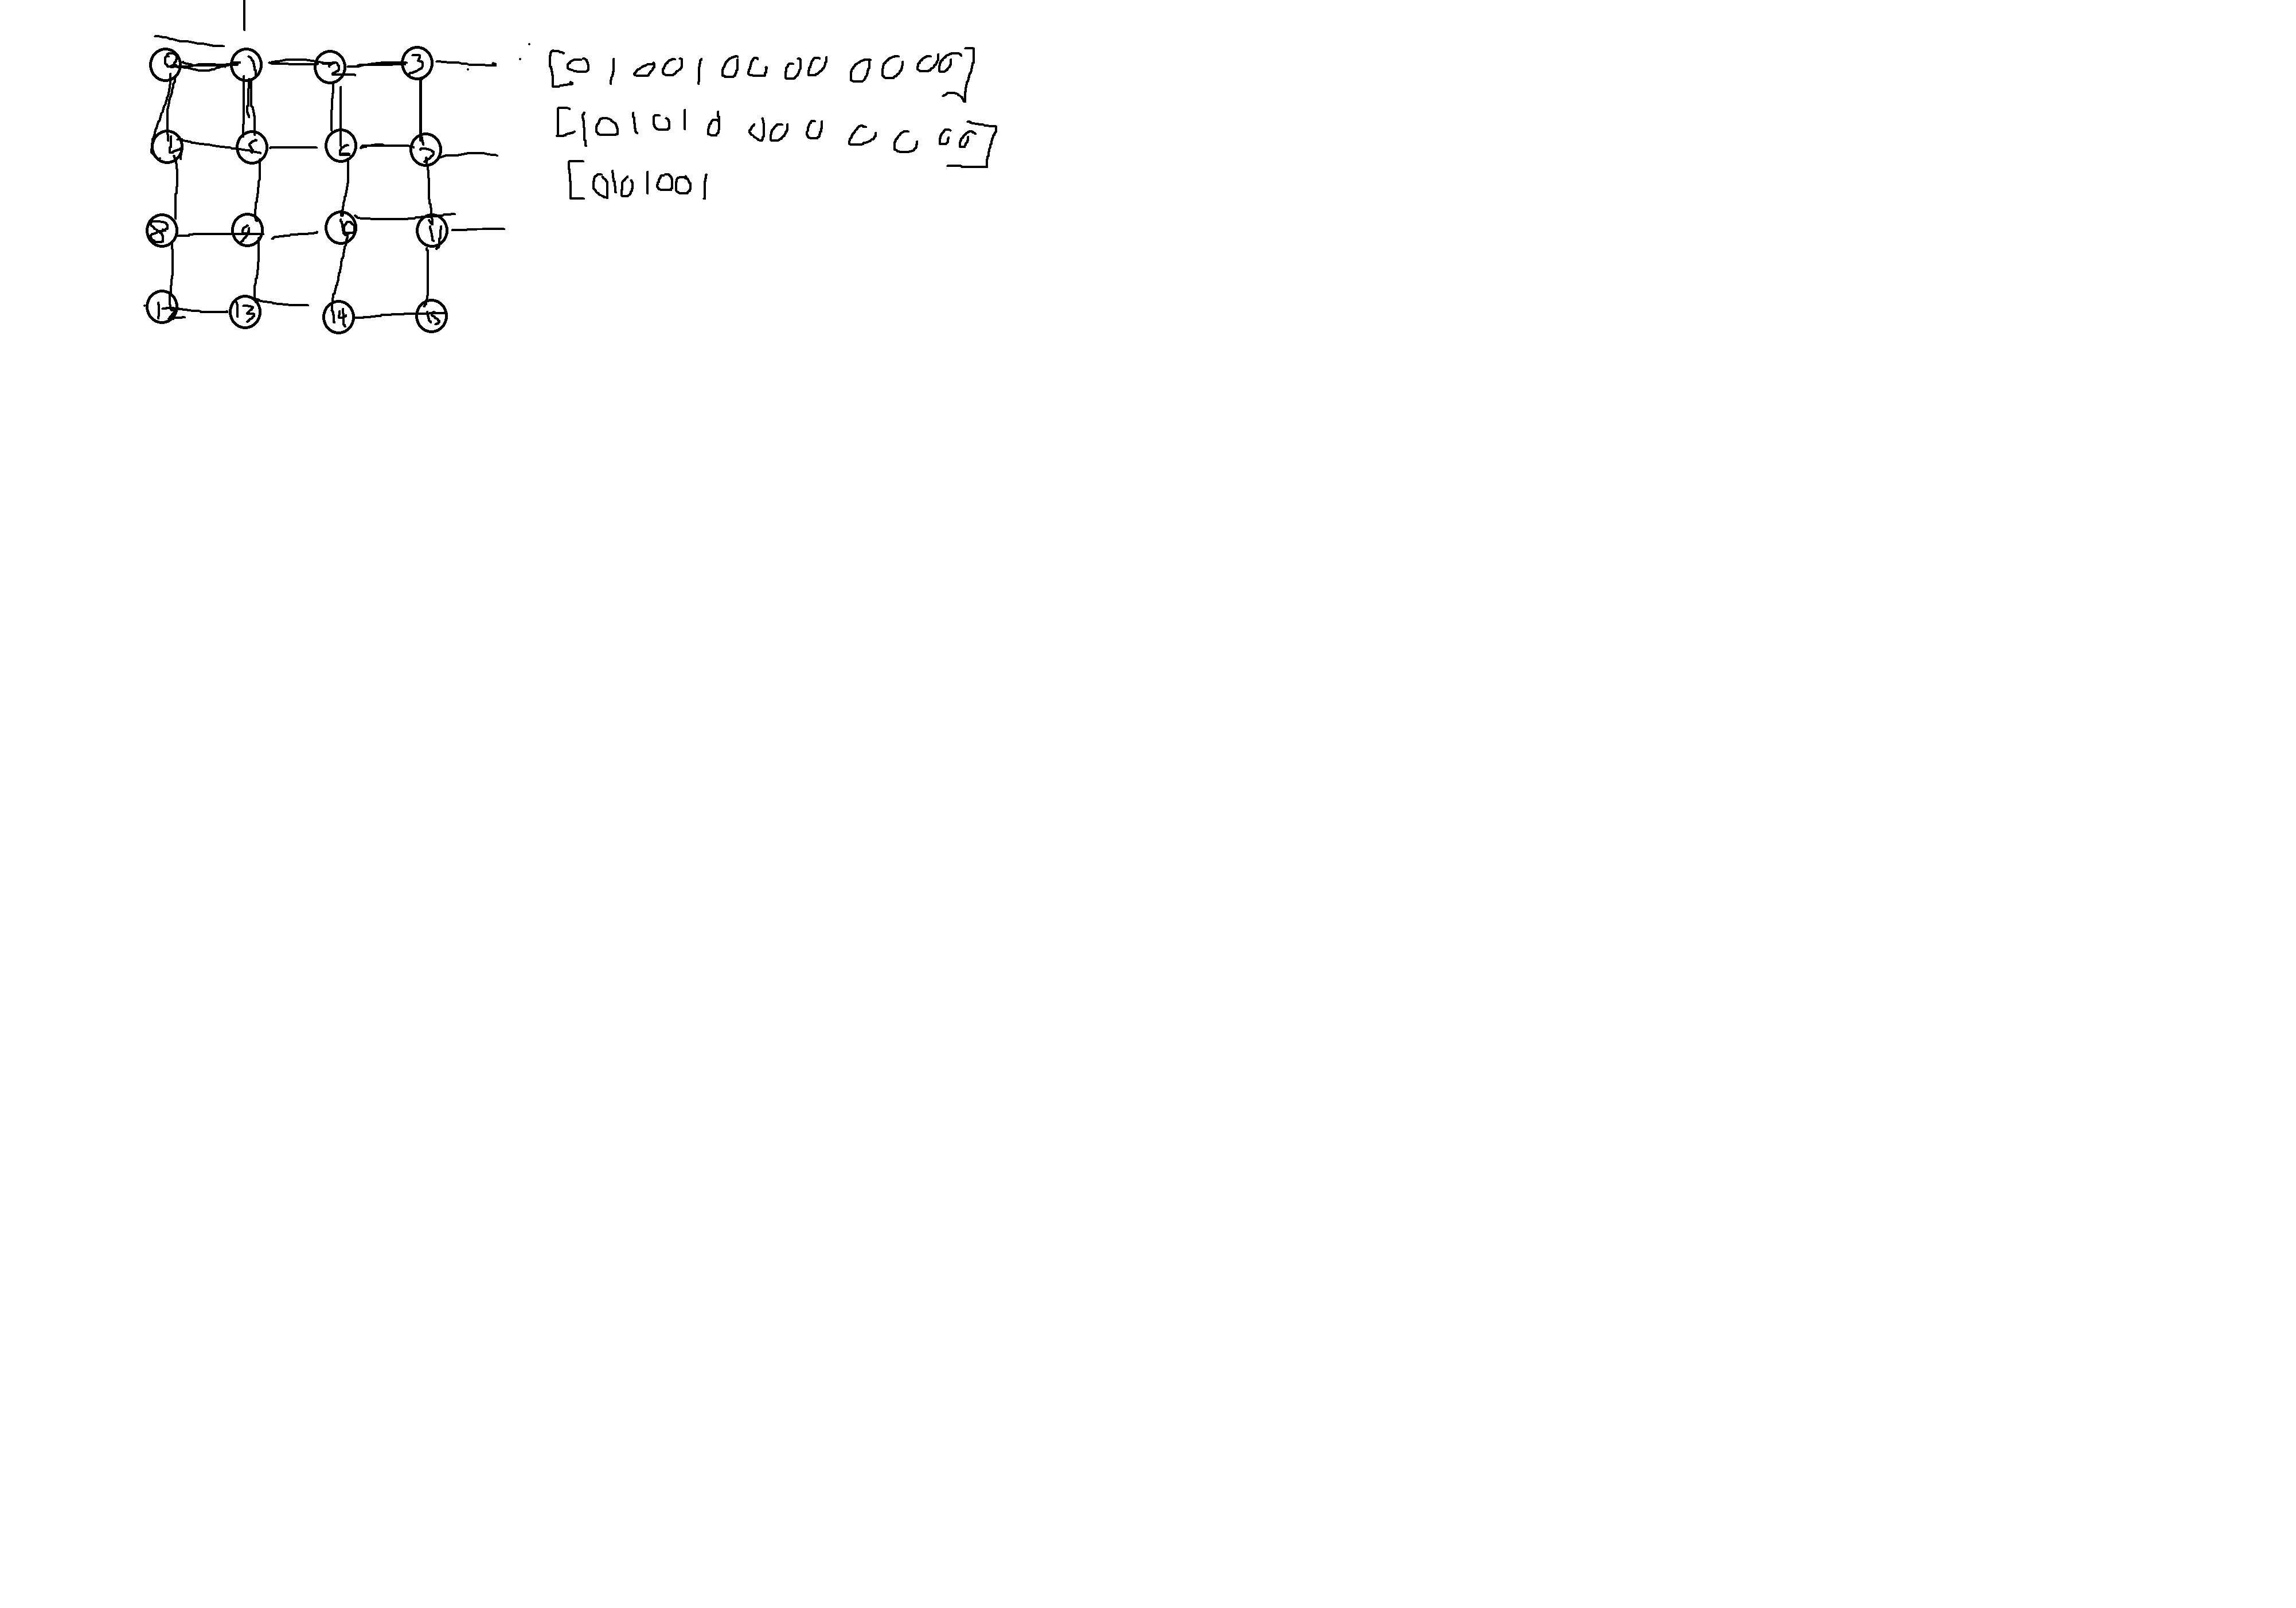 0 1 2 3
4 5 6 7
8 9 10 11
12 13 14 15
[0 1 0 0 1 0 0 0 0 0 0 0 0]
[1 0 1 0 1 0 0 0 0 0 0 0 0]
[0 1 0 1 0 0 1